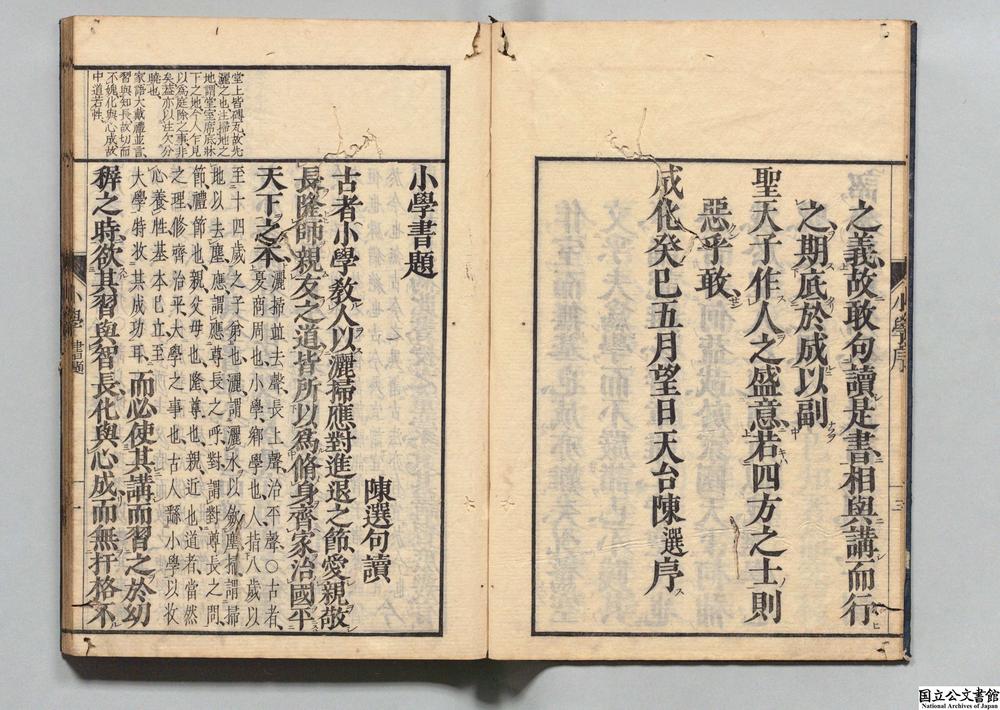 之義故敢句讀是書相與講而行
之期底於成以副
聖天子作人之盛意若四方之士則
惡乎敢
成化癸巳五月望日天台陳選序
小學序
三
堂上皆磚瓦故先
灑之也注掃地之
地謂堂室席底牀
下之地今人乍見
以爲庭除之事非
矣蓋亦以注欠分
曉也
家語大戴禮並言
習與知長故切而
不媿化與心成故
中道若性
小學書題
陳選句讀
古者小學教人以灑掃應對進退之節愛親敬
長隆師親友之道皆所以爲脩身齊家治國平
天下之本
灑掃並去聲長上聲治平聲○古者
夏商周也小學鄉學也人指八歲以
至十四歲之子弟也灑謂灑水以斂塵掃謂掃
地以去塵應謂應尊長之呼對謂對尊長之問
節禮節也親父母也隆尊也親近也道者當然
之理修齊治平大學之事也古人繇小學以收
心養性基本已立至
大學特收其成功耳
而必使其講而習之於幼
穉之時欲其習與智長化與心成而無扞格不
小學
書題
一
国立公文書館
National Archives of Japan